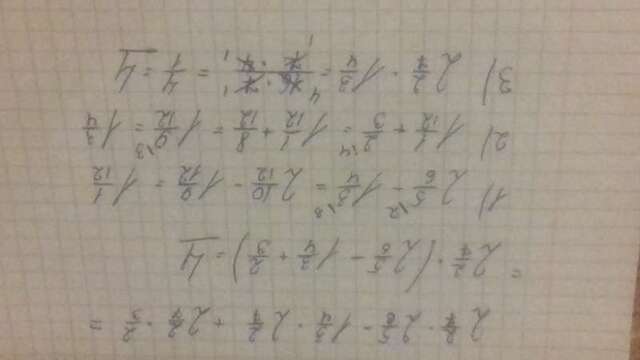 2 2/7 · 2 5/6 − 1 3/4 · 2 2/7 + 2 2/7 · 2/3 =
= 2 2/7 · (2 5/6 − 1 3/4 + 2/3) = 4
1) 2 5/6 \2 − 1 3/4 \3 = 2 10/12 − 1 9/12 = 1 1/12
2) 1 1/12 + 2/3 \4 = 1 1/12 + 8/12 = 1 9/12 \3 = 1 3/4
3) 2 2/7 · 1 3/4 = 16 · 7 / 7 · 4 = 4/1 = 4